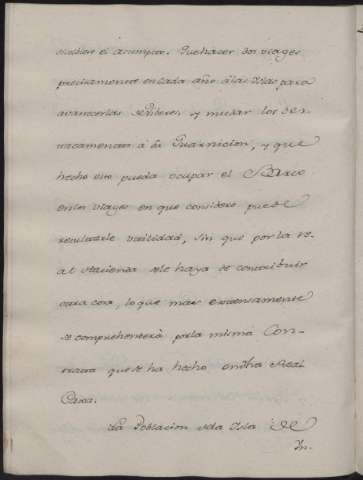 el asumpto. Que hacer dos viages
precisamente en cada año á las Yslas para
avanzerlas de Viberes y mudar los des-
tacamentos á su Guarnicion, y que
hecho esto pueda ocupar el Barco
en los viages en que considere puede
resultarle utilidad, sin que por la re-
al Hacienda sele haya de contribuir
otra cosa, lo que mas extensamente
se comprehenterá por la misma Con-
trata que se ha hecho en dha Real
Caxa.
La Poblacion dela Ysla de